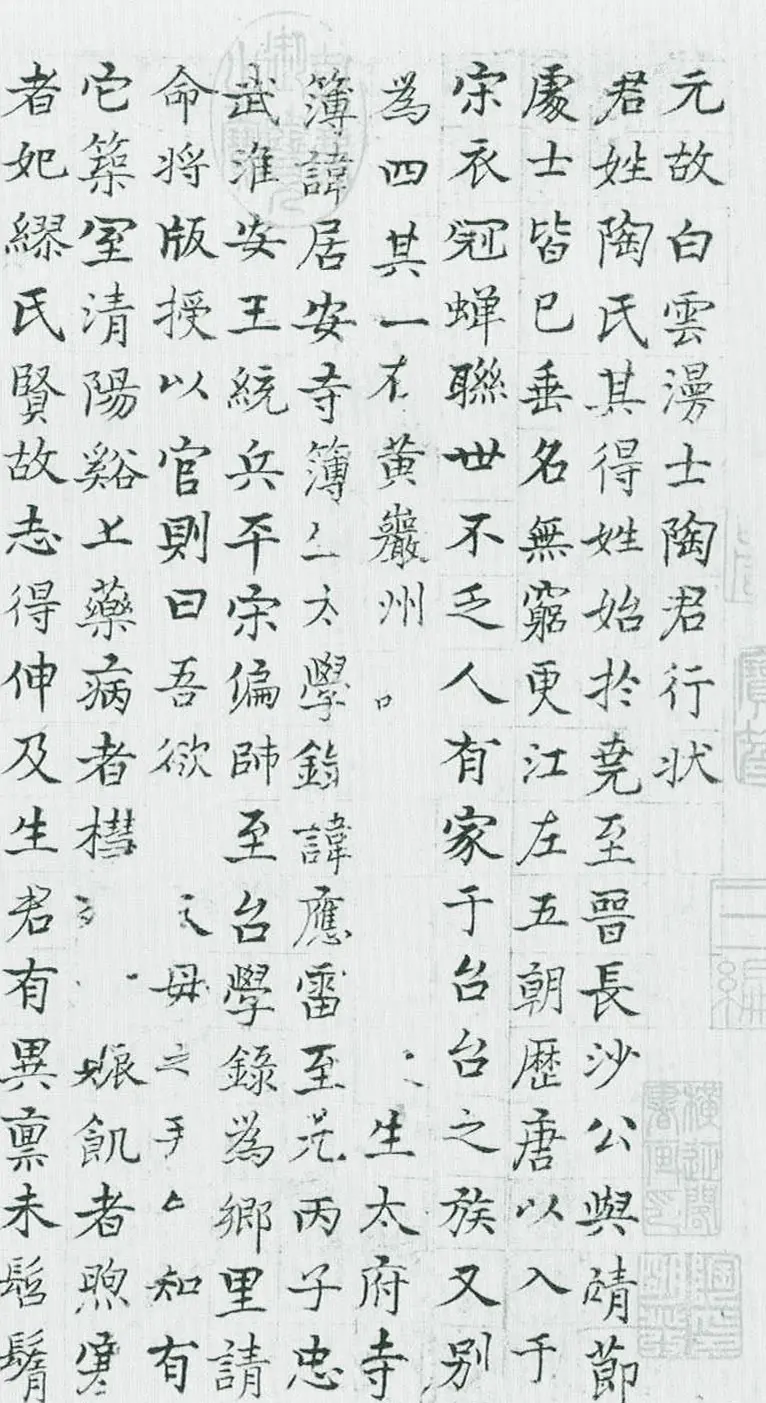 元故白雲漫士陶君行狀
君姓陶氏其得姓始於堯至晉長沙公與靖節
處士皆已垂名無窮更江左五朝歷唐以入于
宋衣冠蟬聯世不乏人有家于台台之族又別
為四其一在黃巖州生太府寺
簿諱居安寺簿生太學錄諱應雷至元丙子忠
武淮安王統兵平宋偏師至台學錄為鄉里請
命將版授以官則曰吾欲
之母之手知有
它築室清陽谿上藥病者槥
賑飢者煦寒
者妃繆氏賢故志得伸及生君有異稟未髫鬌